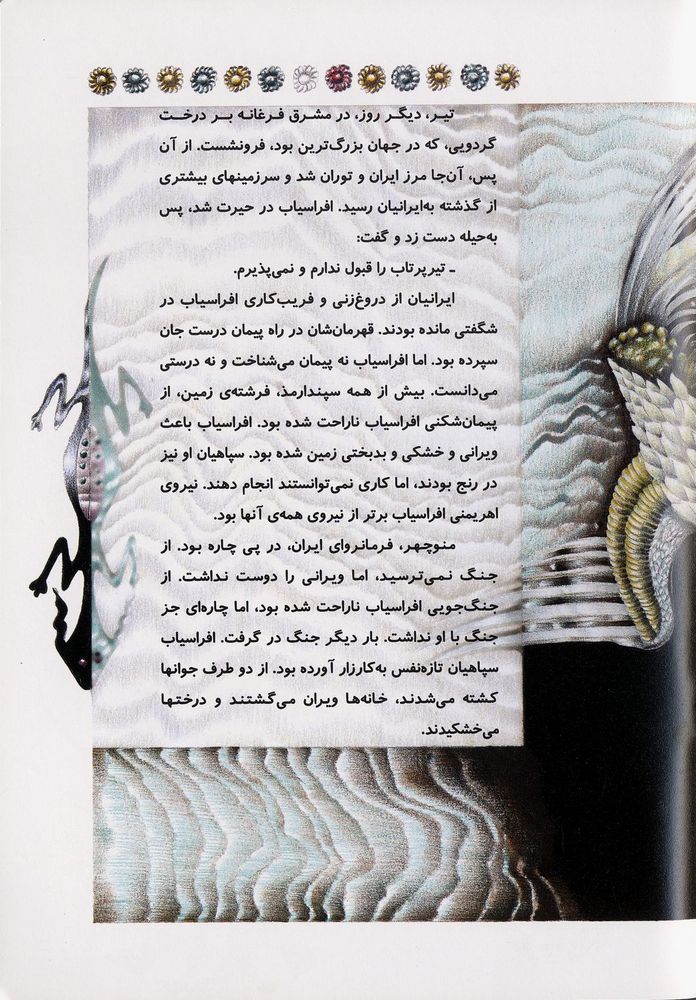 تیر، دیگر روز، در مشرق فرغانه بر درخت
گردویی، که در جهان بزرگ‌ترین بود، فرونشست. از آن
پس، آن‌جا مرز ایران و توران شد و سرزمینهای بیشتری
از گذشته به‌ایرانیان رسید. افراسیاب در حیرت شد، پس
به‌حیله دست زد و گفت:
ـ تیرپرتاب را قبول ندارم و نمی‌پذیرم.
ایرانیان از دروغ‌زنی و فریب‌کاری افراسیاب در
شگفتی مانده بودند. قهرمان‌شان در راه پیمان درست جان
سپرده بود. اما افراسیاب نه پیمان می‌شناخت و نه درستی
می‌دانست. بیش از همه سپندارمذ، فرشته‌ی زمین، از
پیمان‌شکنی افراسیاب ناراحت شده بود. افراسیاب باعث
ویرانی و خشکی و بدبختی زمین شده بود. سپاهیان او نیز
در رنج بودند، اما کاری نمی‌توانستند انجام دهند. نیروی
اهریمنی افراسیاب برتر از نیروی همه‌ی آنها بود.
منوچهر، فرمانروای ایران، در پی چاره بود. از
جنگ نمی‌ترسید، اما ویرانی را دوست نداشت. از
جنگ‌جویی افراسیاب ناراحت شده بود، اما چاره‌ای جز
جنگ با او نداشت. بار دیگر جنگ در گرفت. افراسیاب
سپاهیان تازه‌نفس به‌کارزار آورده بود. از دو طرف جوانها
کشته می‌شدند، خانه‌ها ویران می‌گشتند و درختها
می‌خشکیدند.